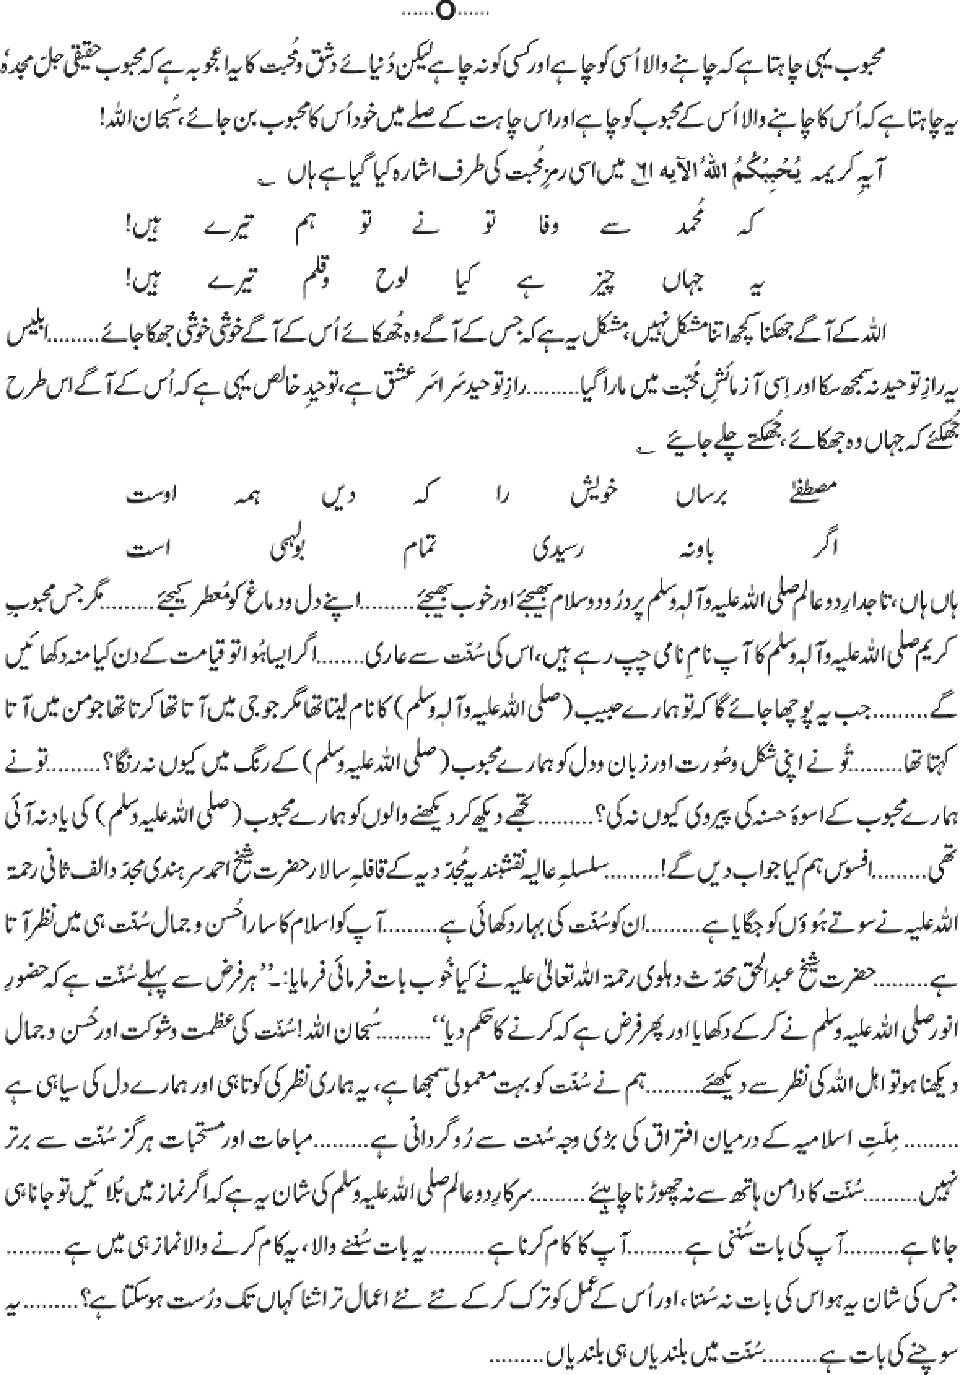 ......O......
محبوب یہی چاہتا ہے کہ چاہنے والا اُسی کو چاہے اور کسی کو نہ چاہے لیکن دُنیائے دشق و مُحبت کا یہ اعجوبہ ہے کہ محبوب حقیقی جل مجدہٗ
یہ چاہتا ہے کہ اُس کا چاہنے والا اُس کے محبوب کو چاہے اور اس چاہت کے صلے میں خود اُس کا محبوب بن جائے، سُبحان اللہ!
آیہِ کریمہ یُحْبِبْکُمُ اللهُ الآیه ٦١ میں اسی رمزِ مُحبت کی طرف اشارہ کیا گیا ہے ہاں ؎
کہ مُحمد سے وفا تو نے تو ہم تیرے ہیں!
یہ جہاں چیز ہے کیا لوح و قلم تیرے ہیں!
اللہ کے آگے جھکنا کچھ اتنا مشکل نہیں، مشکل یہ ہے کہ جس کے آگے وہ جُھکائے اُس کے آگے خوشی خوشی جھکا جائے.........ابلیس
یہ رازِ توحید نہ سمجھ سکا اور اِسی آزمائشِ مُحبّت میں مارا گیا.........رازِ توحید سَراسَر عشق ہے، توحیدِ خالص یہی ہے کہ اُس کے آگے اس طرح
جُھکئے کہ جہاں وہ جھکائے، جُھکتے چلے جائیے ؎
مصطفےٰ برساں خویش را کہ دیں ہمہ اوست
اگر باونہ رسیدی تمام بولہبی است
ہاں ہاں، تاجدارِ دو عالم صلی اللہ علیہ وآلہٖ وسلم پر درُود و سلام بھیجئے اور خوب بھیجئے.........اپنے دل و دماغ کو مُعطر کیجئے.........مگر جس محبوبِ
کریم صلی اللہ علیہ وآلہٖ وسلم کا آپ نامِ نامی جپ رہے ہیں، اس کی سُنّت سے عاری........اگر ایسا ہُوا تو قیامت کے دن کیا منہ دکھائیں
گے.........جب یہ پوچھا جائے گا کہ تو ہمارے حبیب (صلی اللہ علیہ وآلہٖ وسلم) کا نام لیتا تھا مگر جو جی میں آتا تھا کرتا تھا جو من میں آتا
کہتا تھا.........تُو نے اپنی شکل و صُورت اور زبان و دل کو ہمارے محبوب (صلی اللہ علیہ وسلم) کے رنگ میں کیوں نہ رنگا؟.........تو نے
ہمارے محبوب کے اسوۂ حسنہ کی پیروی کیوں نہ کی؟.........تجھے دیکھ کر دیکھنے والوں کو ہمارے محبوب (صلی اللہ علیہ وسلم) کی یاد نہ آئی
تھی.........افسوس ہم کیا جواب دیں گے!.........سلسلہِ عالیہ نقشبندیہ مُجدّدیہ کے قافلہِ سالار حضرت شیخ احمد سرہندی مجدّد الف ثانی رحمۃ
اللہ علیہ نے سوتے ہُوؤں کو جگایا ہے.........ان کو سُنّت کی بہار دکھائی ہے.........آپ کو اسلام کا سارا حُسن و جمال سُنّت ہی میں نظر آتا
ہے.........حضرت شیخ عبد الحق محدّث دہلوی رحمۃ اللہ تعالیٰ علیہ نے کیا خُوب بات فرمائی فرمایا:۔ ’’ہر فرض سے پہلے سُنّت ہے کہ حضورِ
انور صلی اللہ علیہ وسلم نے کر کے دکھایا اور پھر فرض ہے کہ کرنے کا حکم دیا‘‘.........سُبحان اللہ! سُنّت کی عظمت و شوکت اور حُسن و جمال
دیکھنا ہو تو اہل اللہ کی نظر سے دیکھئے.........ہم نے سُنّت کو بہت معمولی سمجھا ہے، یہ ہماری نظر کی کوتاہی اور ہمارے دل کی سیاہی ہے
.........مِلّتِ اسلامیہ کے درمیان افتراق کی بڑی وجہ سُنت سے رُوگردانی ہے.........مباحات اور مستحبات ہرگز سُنّت سے برتر
نہیں.........سُنّت کا دامن ہاتھ سے نہ چھوڑنا چاہیئے.........سرکارِ دو عالم صلی اللہ علیہ وسلم کی شان یہ ہے کہ اگر نماز میں بُلائیں تو جانا ہی
جانا ہے.........آپ کی بات سُننی ہے.........آپ کا کام کرنا ہے.........یہ بات سُننے والا، یہ کام کرنے والا نماز ہی میں ہے.........
جس کی شان یہ ہو اس کی بات نہ سُننا، اور اُس کے عمل کو ترک کر کے نئے نئے اعمال تراشنا کہاں تک درُست ہو سکتا ہے؟.........یہ
سوچنے کی بات ہے.........سُنّت میں بلندیاں ہی بلندیاں.........